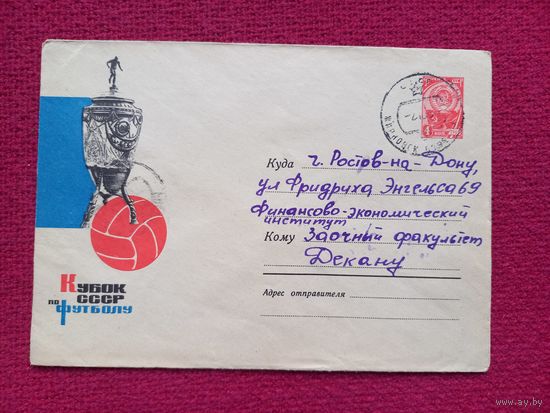 Куда г. Ростов-на-Дону,
ул Фридриха Энгельса 69
Финансово-экономический
институт
Кому Заочный факультет
Декану
Адрес отправителя
Кубок
СССР
по
футболу
4
www.ay.by